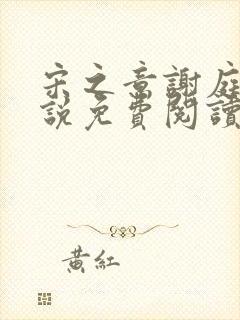 宋之章謝庭
說免費閱讀
黃紅